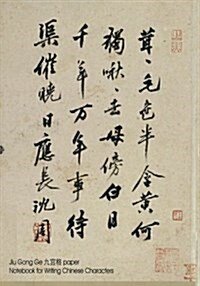 茸〻毛色半含黃何
獨啾〻去母傍白日
千年万年事待
渠催曉日應長沈周
Jiu Gong Ge 九宫格 paper
Notebook for Writing Chinese Characters